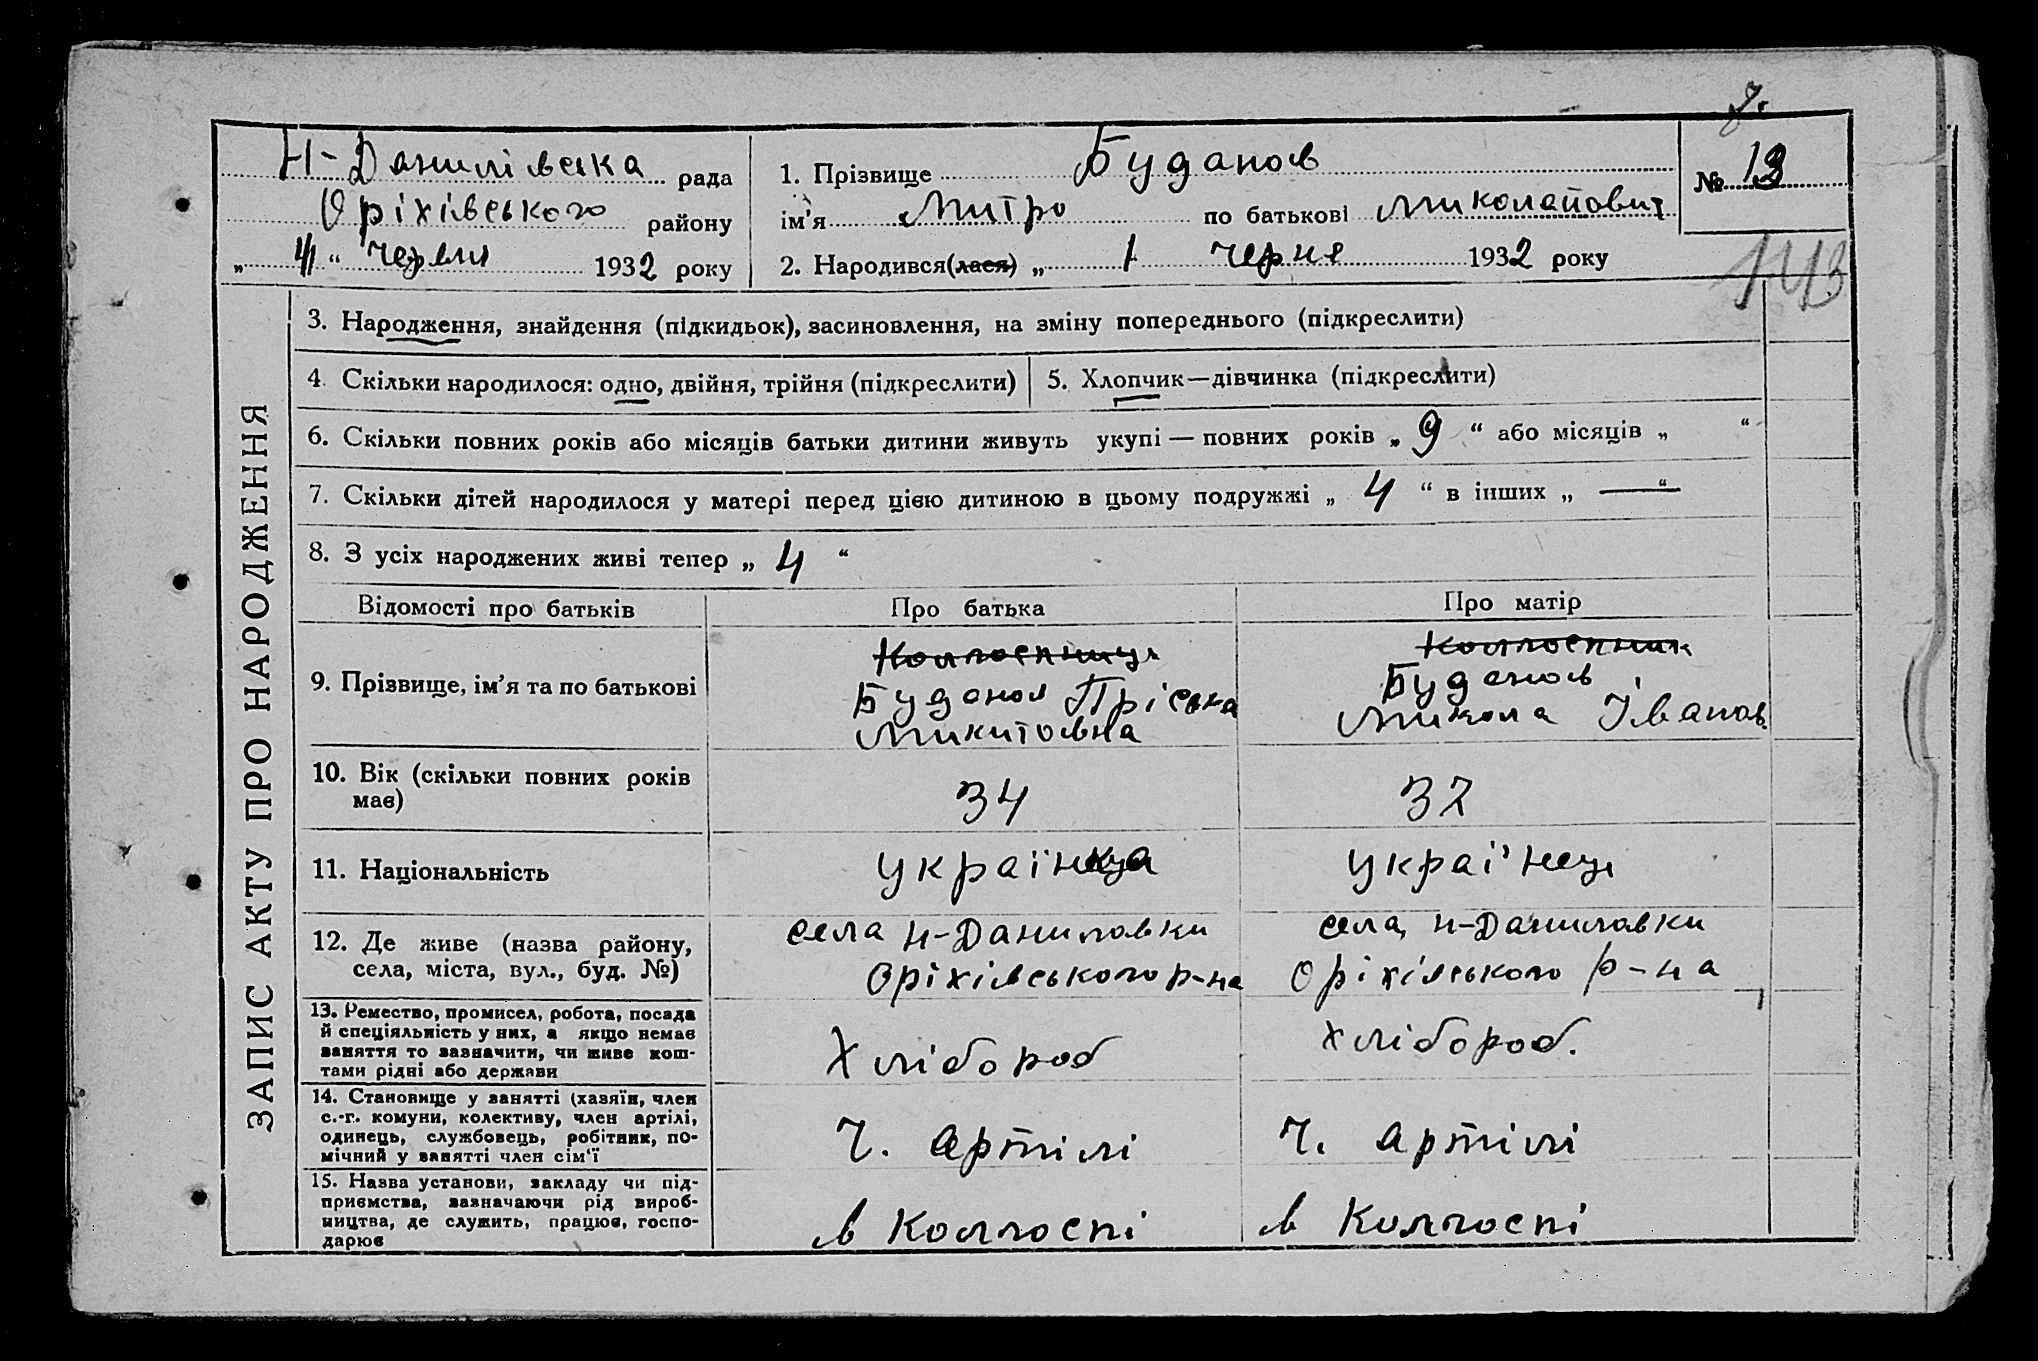 Н-Данилівська рада
Оріхівського району
„ 4 “ Червня 1932 року
1. Прізвище Буданов
ім’я Митро по батькові Миколайович
2. Народився(лася) „ 1 черня 1932 року
№ 13
143
ЗАПИС АКТУ ПРО НАРОДЖЕННЯ
3. Народження, знайдення (підкидьок), засиновлення, на зміну попереднього (підкреслити)
4. Скільки народилося: одно, двійня, трійня (підкреслити)
5. Хлопчик—дівчинка (підкреслити)
6. Скільки повних років або місяців батьки дитини живуть укупі — повних років „ 9 “ або місяців „ “
7. Скільки дітей народилося у матері перед цією дитиною в цьому подружжі „ 4 “ в інших „ — “
8. З усіх народжених живі тепер „ 4 “
Відомості про батьків
Про батька
Про матір
9. Прізвище, ім’я та по батькові
Колгоспниця
Буданов Пріська
Микитовна
Колгоспник
Буданов
Микола Іванов
10. Вік (скільки повних років
має)
34
32
11. Національність
українка
українец
12. Де живе (назва району,
села, міста, вул., буд. №)
села Н-Даниловки
Оріхівського р-на
села Н-Даниловки
Оріхівського р-на
13. Ремество, промисел, робота, посада
й спеціяльність у них, а якщо немає
заняття то зазначити, чи живе кош-
тами рідні або держави
Хлібороб
Хлібороб.
14. Становище у занятті (хазяїн, член
с.-г. комуни, колективу, член артілі,
одинець, службовець, робітник, по-
мічний у занятті член сім’ї
Ч. артілі
Ч. артілі
15. Назва установи, закладу чи під-
приємства, зазначаючи рід вироб-
ництва, де служить, працює, госпо-
дарює
в Колгоспі
в Колгоспі